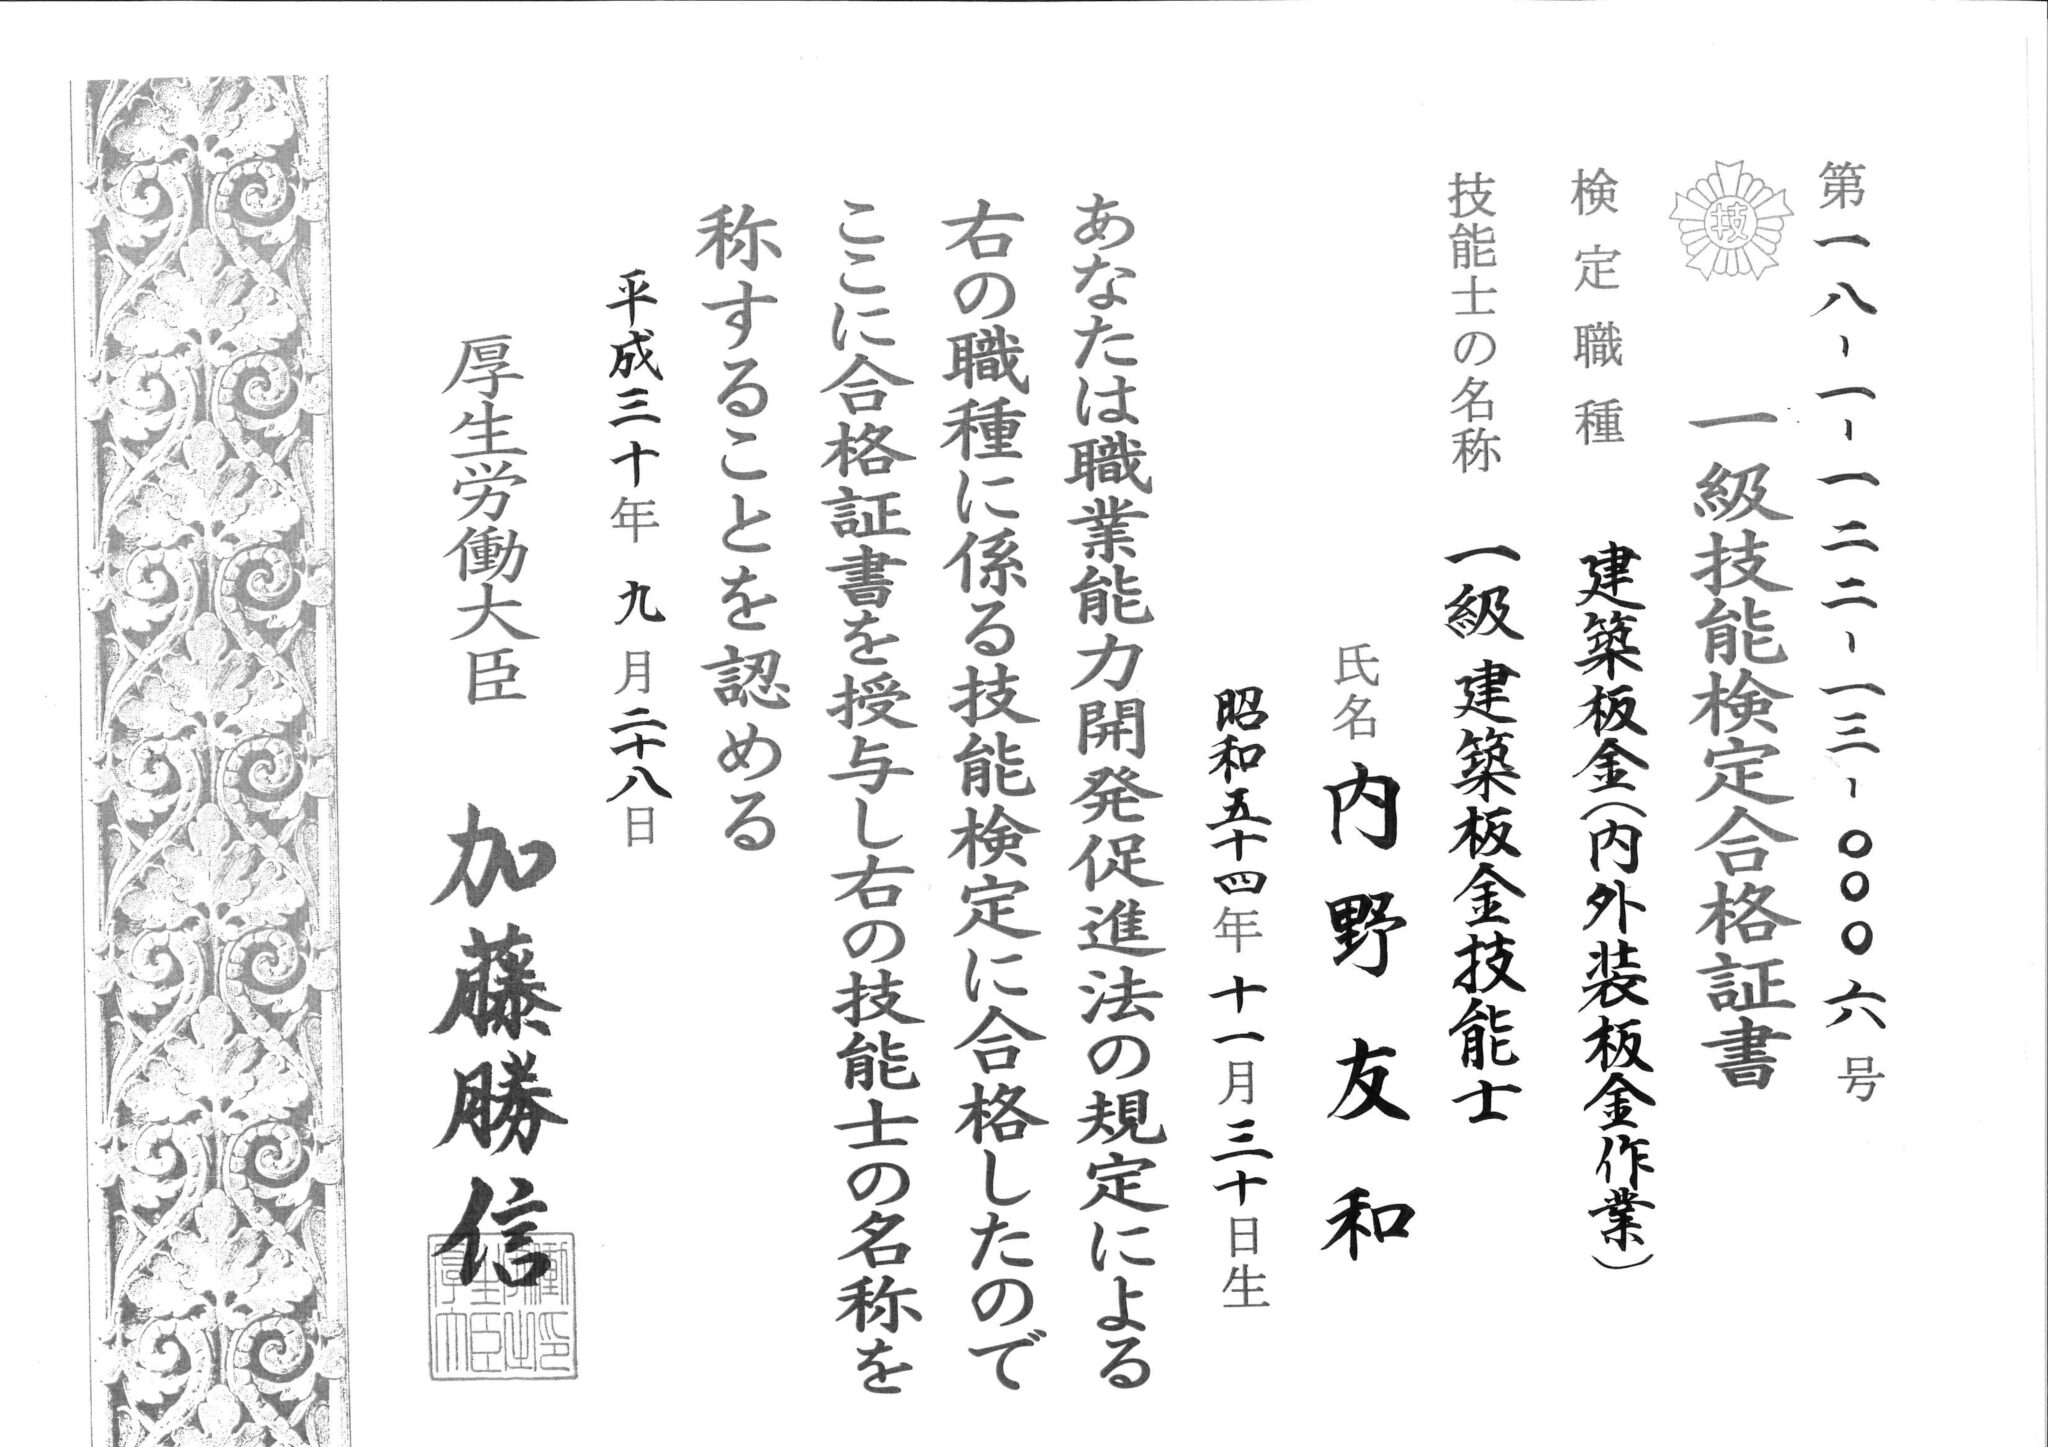 第一八-一-一二二-一三-〇〇〇六号
技
一級技能検定合格証書
検定職種 建築板金(内外装板金作業)
技能士の名称 一級建築板金技能士
氏名 内野友和
昭和五十四年十一月三十日生
あなたは職業能力開発促進法の規定による
右の職種に係る技能検定に合格したので
ここに合格証書を授与し右の技能士の名称を
称することを認める
平成三十年九月二十八日
厚生労働大臣 加藤勝信